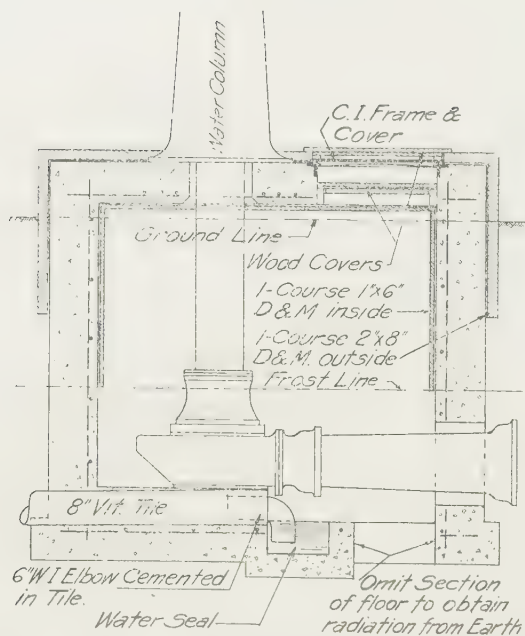 Water Column
C.I. Frame &
Cover
Ground Line
Wood Covers
1-Course 1"x6"
D&M inside
1-Course 2"x8"
D&M. outside
Frost Line
8" Vit. Tile
6" W I Elbow Cemented
in Tile.
Water Seal
Omit Section
of floor to obtain
radiation from Earth